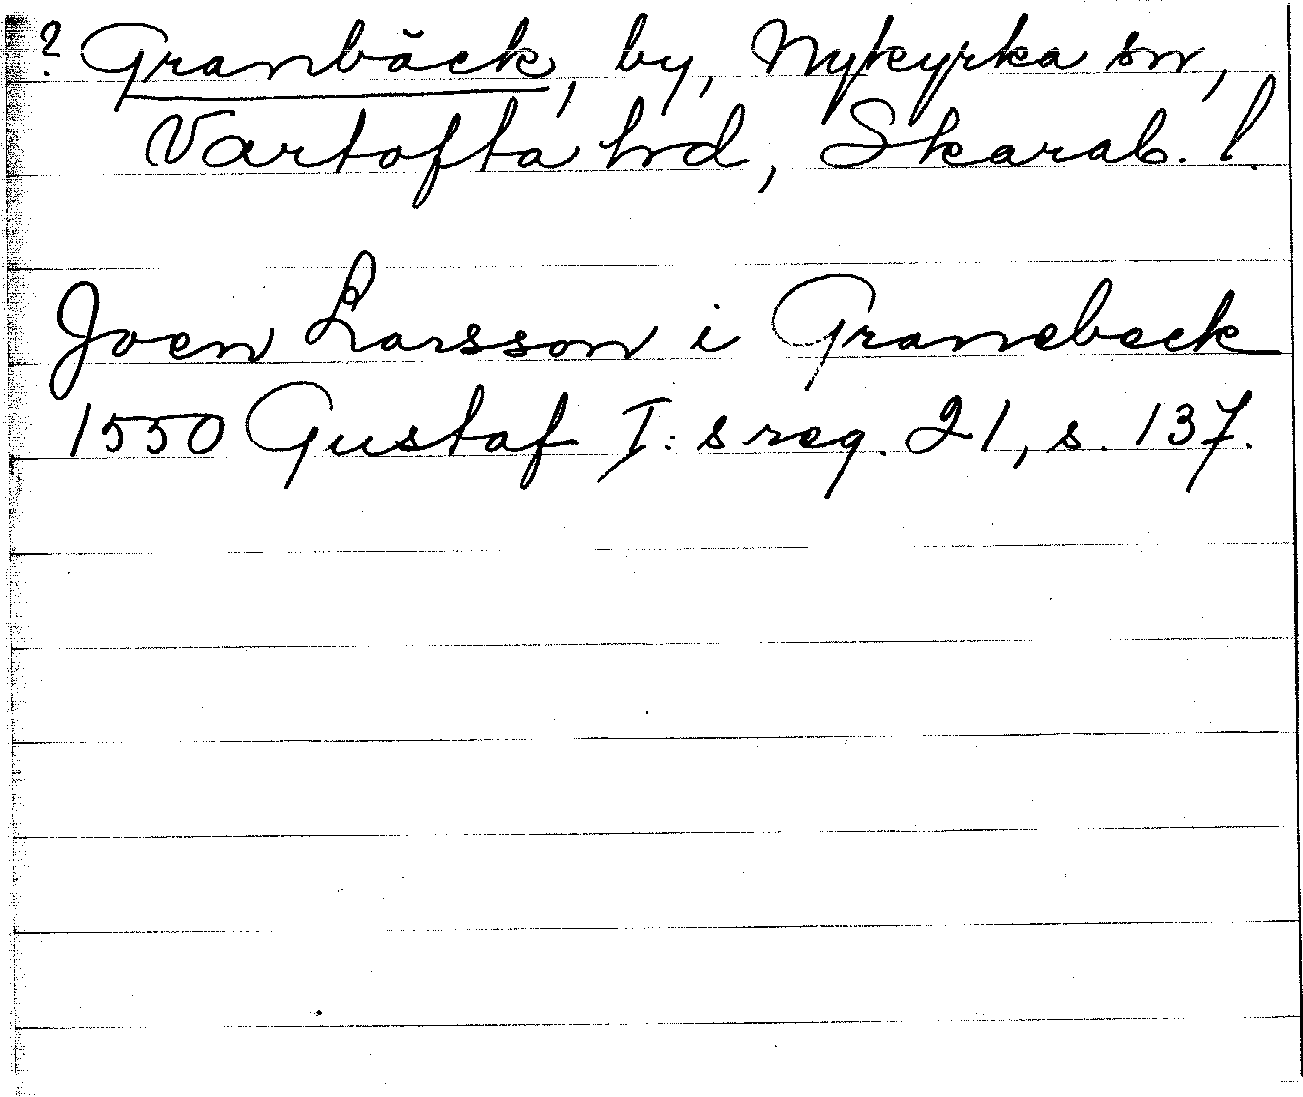 ? Granbäck, by, Nykyrka sn,
Vartofta hrd, Skarab. l.
Joen Larsson i Graneback
1550 Gustaf I:s reg. 21, s. 137.